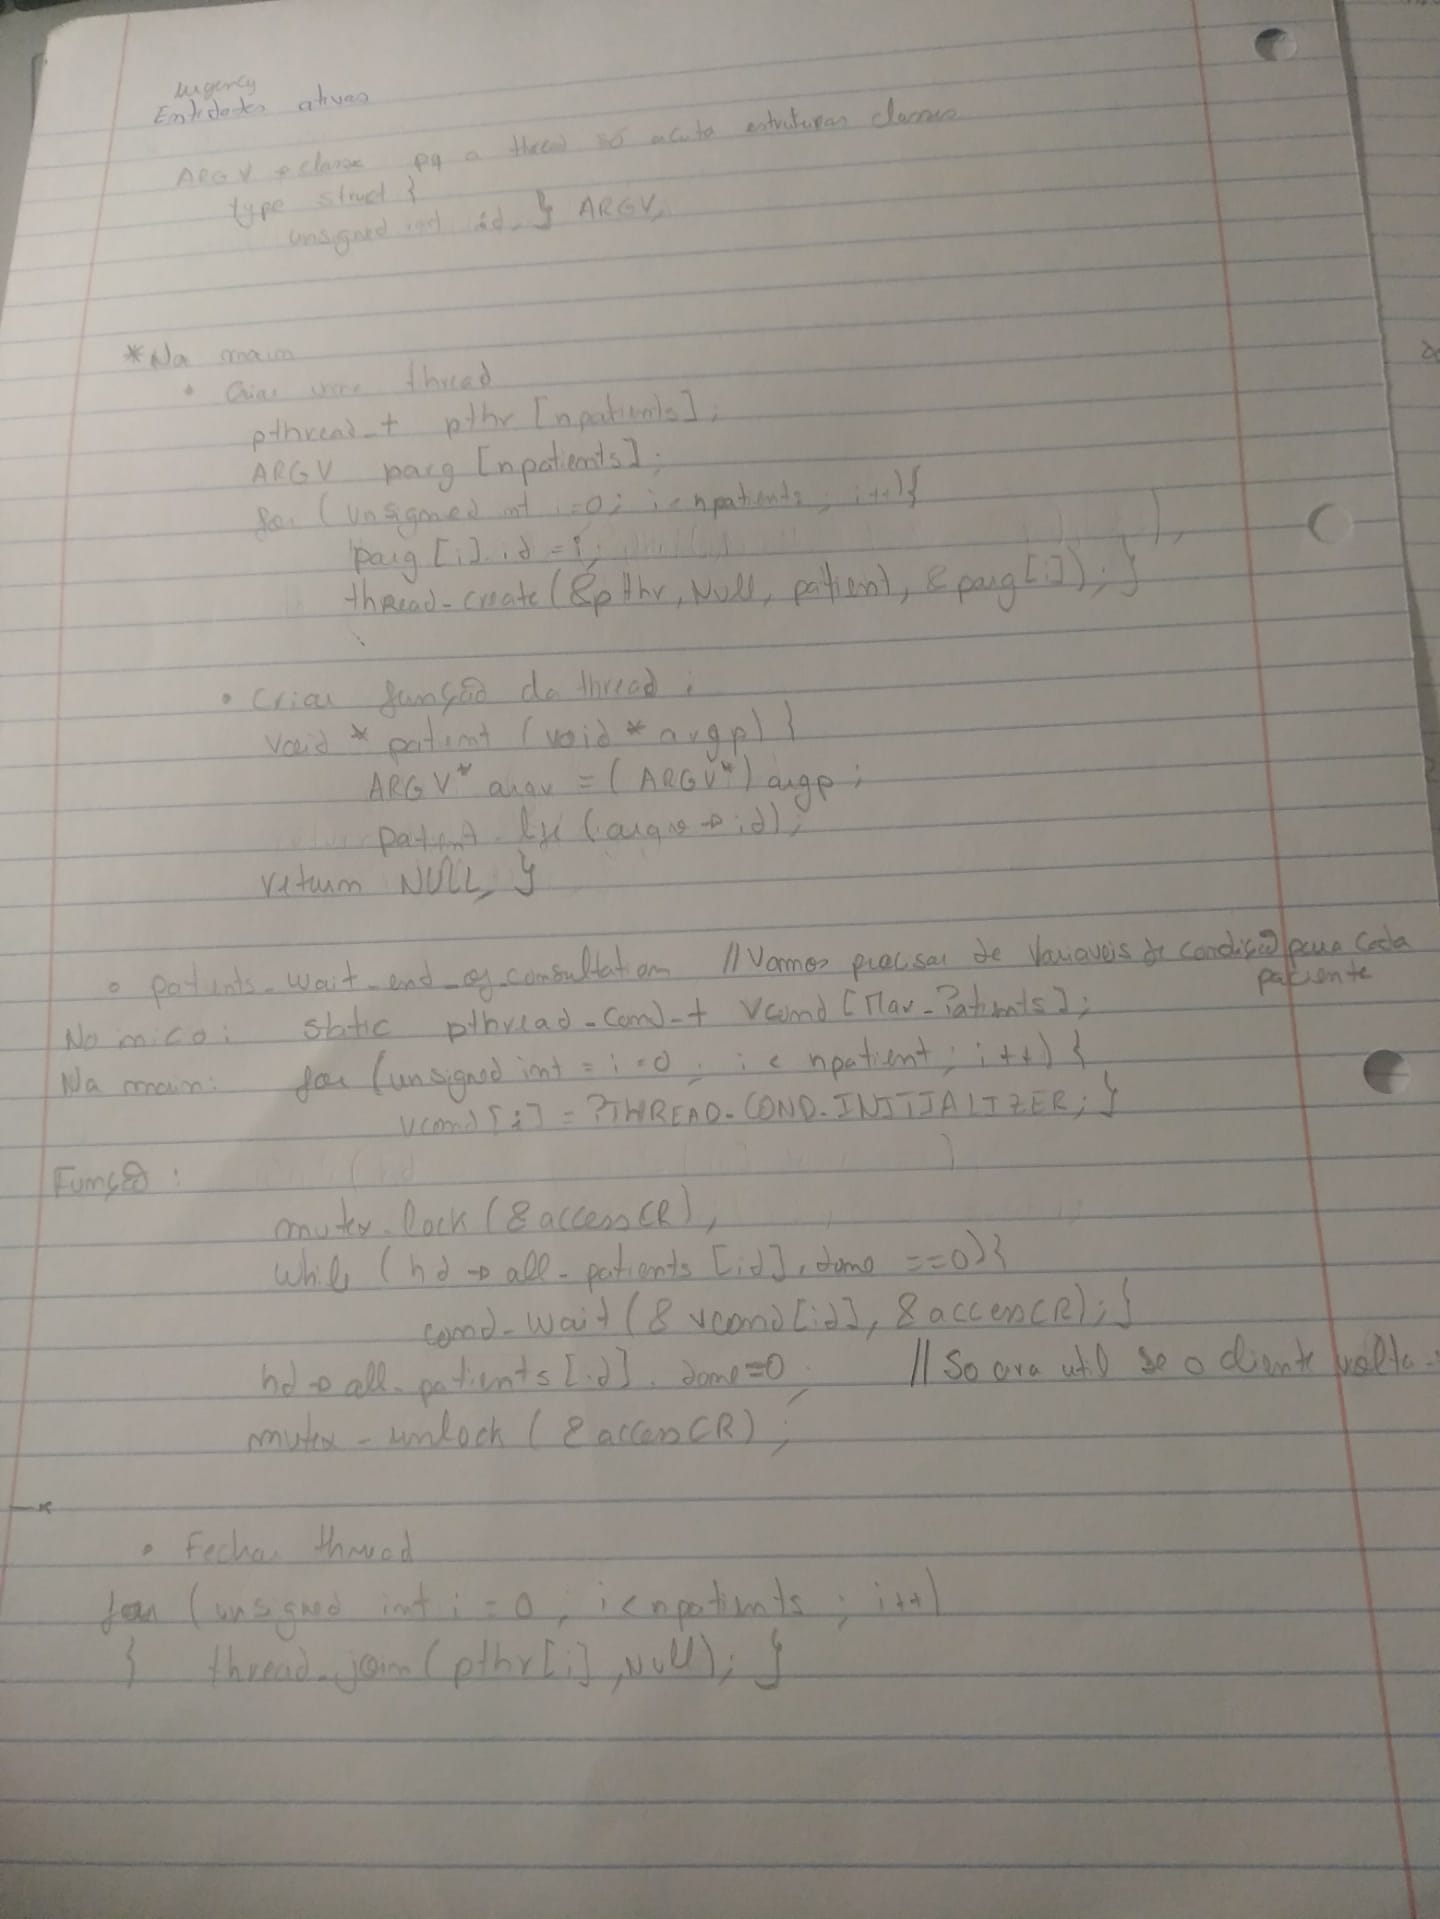 urgency
Entidades ativas
ARGV → classe pq a thread só aceita estruturas classes
type struct {
unsigned int id } ARGV;
* Na main
• Criar uma thread
pthread_t pthr [npatients];
ARGV parg [npatients];
for (unsigned int i=0; i<npatients; i++){
parg [i].id = i;
thread_create (&pthr, Null, patient, &parg[i]); }
• Criar função da thread:
void * patient (void * argp) {
ARGV* argv = (ARGV*) argp;
patient_life (argv → id);
return NULL; }
• patients_wait_end_of_consultation // Vamos precisar de variaveis de condição para cada
paciente
No inicio: static pthread_cond_t vcond [Max_Patients];
Na main: for (unsigned int = i=0; i < npatient; i++) {
vcond [i] = PTHREAD_COND_INITIALIZER; }
Função:
mutex_lock (&accessCR);
while (hd → all_patients [id].done ==0){
cond_wait (& vcond[id], &accessCR); }
hd → all_patients [id].done=0; // So era util se o cliente volta-se
mutex_unlock (&accessCR);
• Fechar thread
for (unsigned int i = 0; i<npatients; i++)
{ thread_join (pthr[i], Null); }